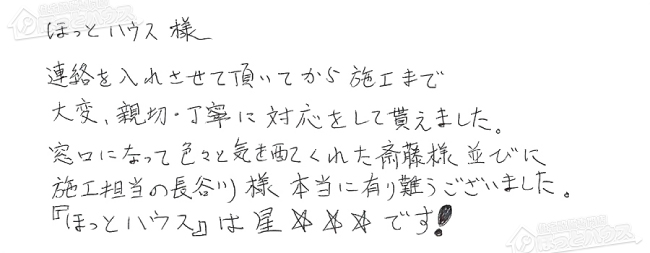 ほっとハウス 様
連絡を入れさせて頂いてから 施工まで
大変、親切・丁寧に 対応をして貰えました。
窓口になって 色々と気を配てくれた 斎藤様 並びに
施工担当の長谷川 様 本当に有り難うございました。
『ほっとハウス』は 星☆☆☆です!